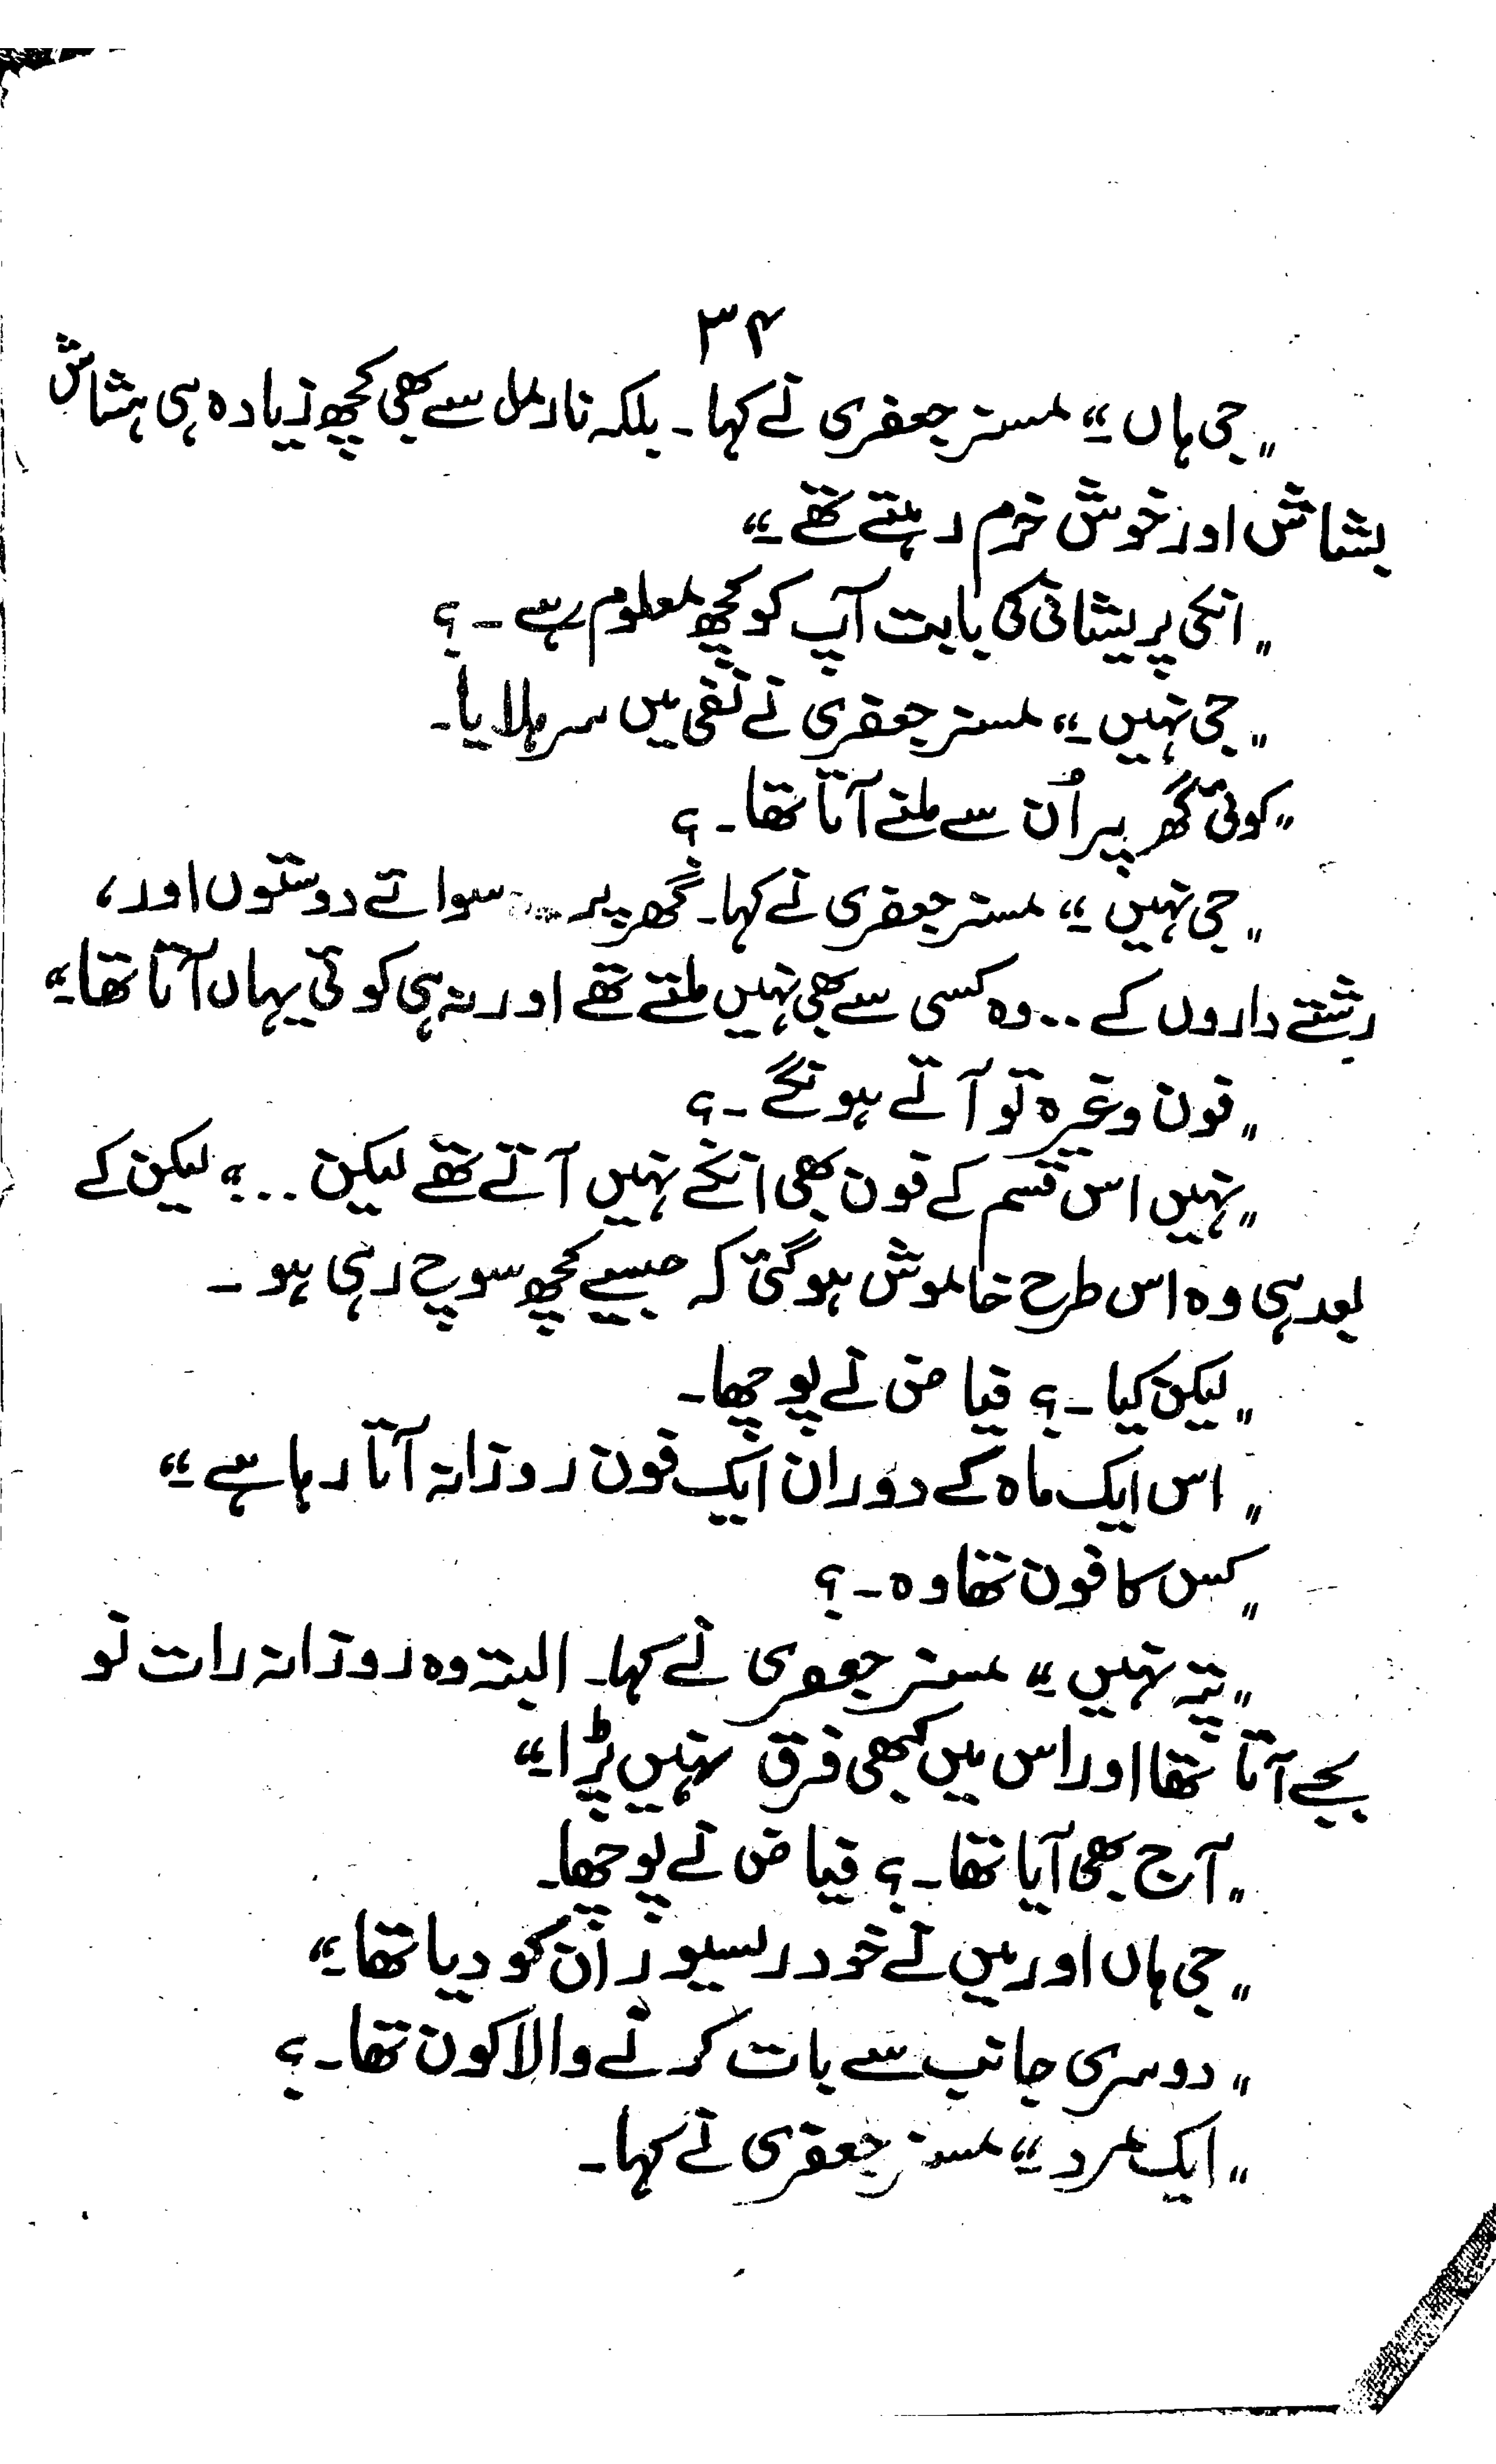 ۳۴
"جی ہاں۔" مسنر جعفری نے کہا۔ بلکہ نارمل سے بھی کچھ زیادہ ہی ہشاش
بشاش اور خوش خرم رہتے تھے۔"
"انکی پریشانی کی بابت آپ کو کچھ معلوم ہے۔؟
"جی نہیں۔" مسنر جعفری نے نفی میں سر ہلایا۔
"کوئی گھر پر اُن سے ملنے آتا تھا۔؟
"جی نہیں۔" مسنر جعفری نے کہا۔ گھر پر... سوائے دوستوں اور،
رشتے داروں کے... وہ کسی سے بھی نہیں ملتے تھے اور نہ ہی کوئی یہاں آتا تھا۔"
"فون وغیرہ تو آتے ہونگے۔؟
"نہیں اس قسم کے فون بھی انکے نہیں آتے تھے لیکن...؟ لیکن کے
بعد ہی وہ اس طرح خاموش ہو گئی کہ جیسے کچھ سوچ رہی ہو۔
"لیکن کیا۔؟ فیاض نے پوچھا۔
"اس ایک ماہ کے دوران ایک فون روزانہ آتا رہا ہے"
"کس کا فون تھا وہ۔؟
"پتہ نہیں۔" مسنر جعفری نے کہا۔ البتہ وہ روزانہ رات نو
بجے آتا تھا اور اس میں کبھی فرق نہیں پڑا۔"
"آج بھی آیا تھا۔؟ فیاض نے پوچھا۔
"جی ہاں اور میں نے خود ریسیور ان کو دیا تھا۔"
"دوسری جانب سے بات کرنے والا کون تھا۔؟
"ایک مرد۔" مسنر جعفری نے کہا۔